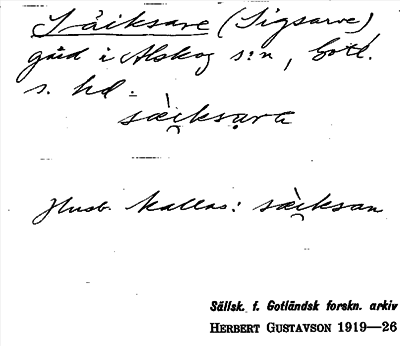 Såiksare (Sigsarve)
gård i Alskog s:n, Gotl.
s. hd.
sæ̀i̯ksạrα
Husb. kallas: sæ̀i̯ksan
Sällsk. f. Gotländsk forskn. arkiv
HERBERT GUSTAVSON 1919—26